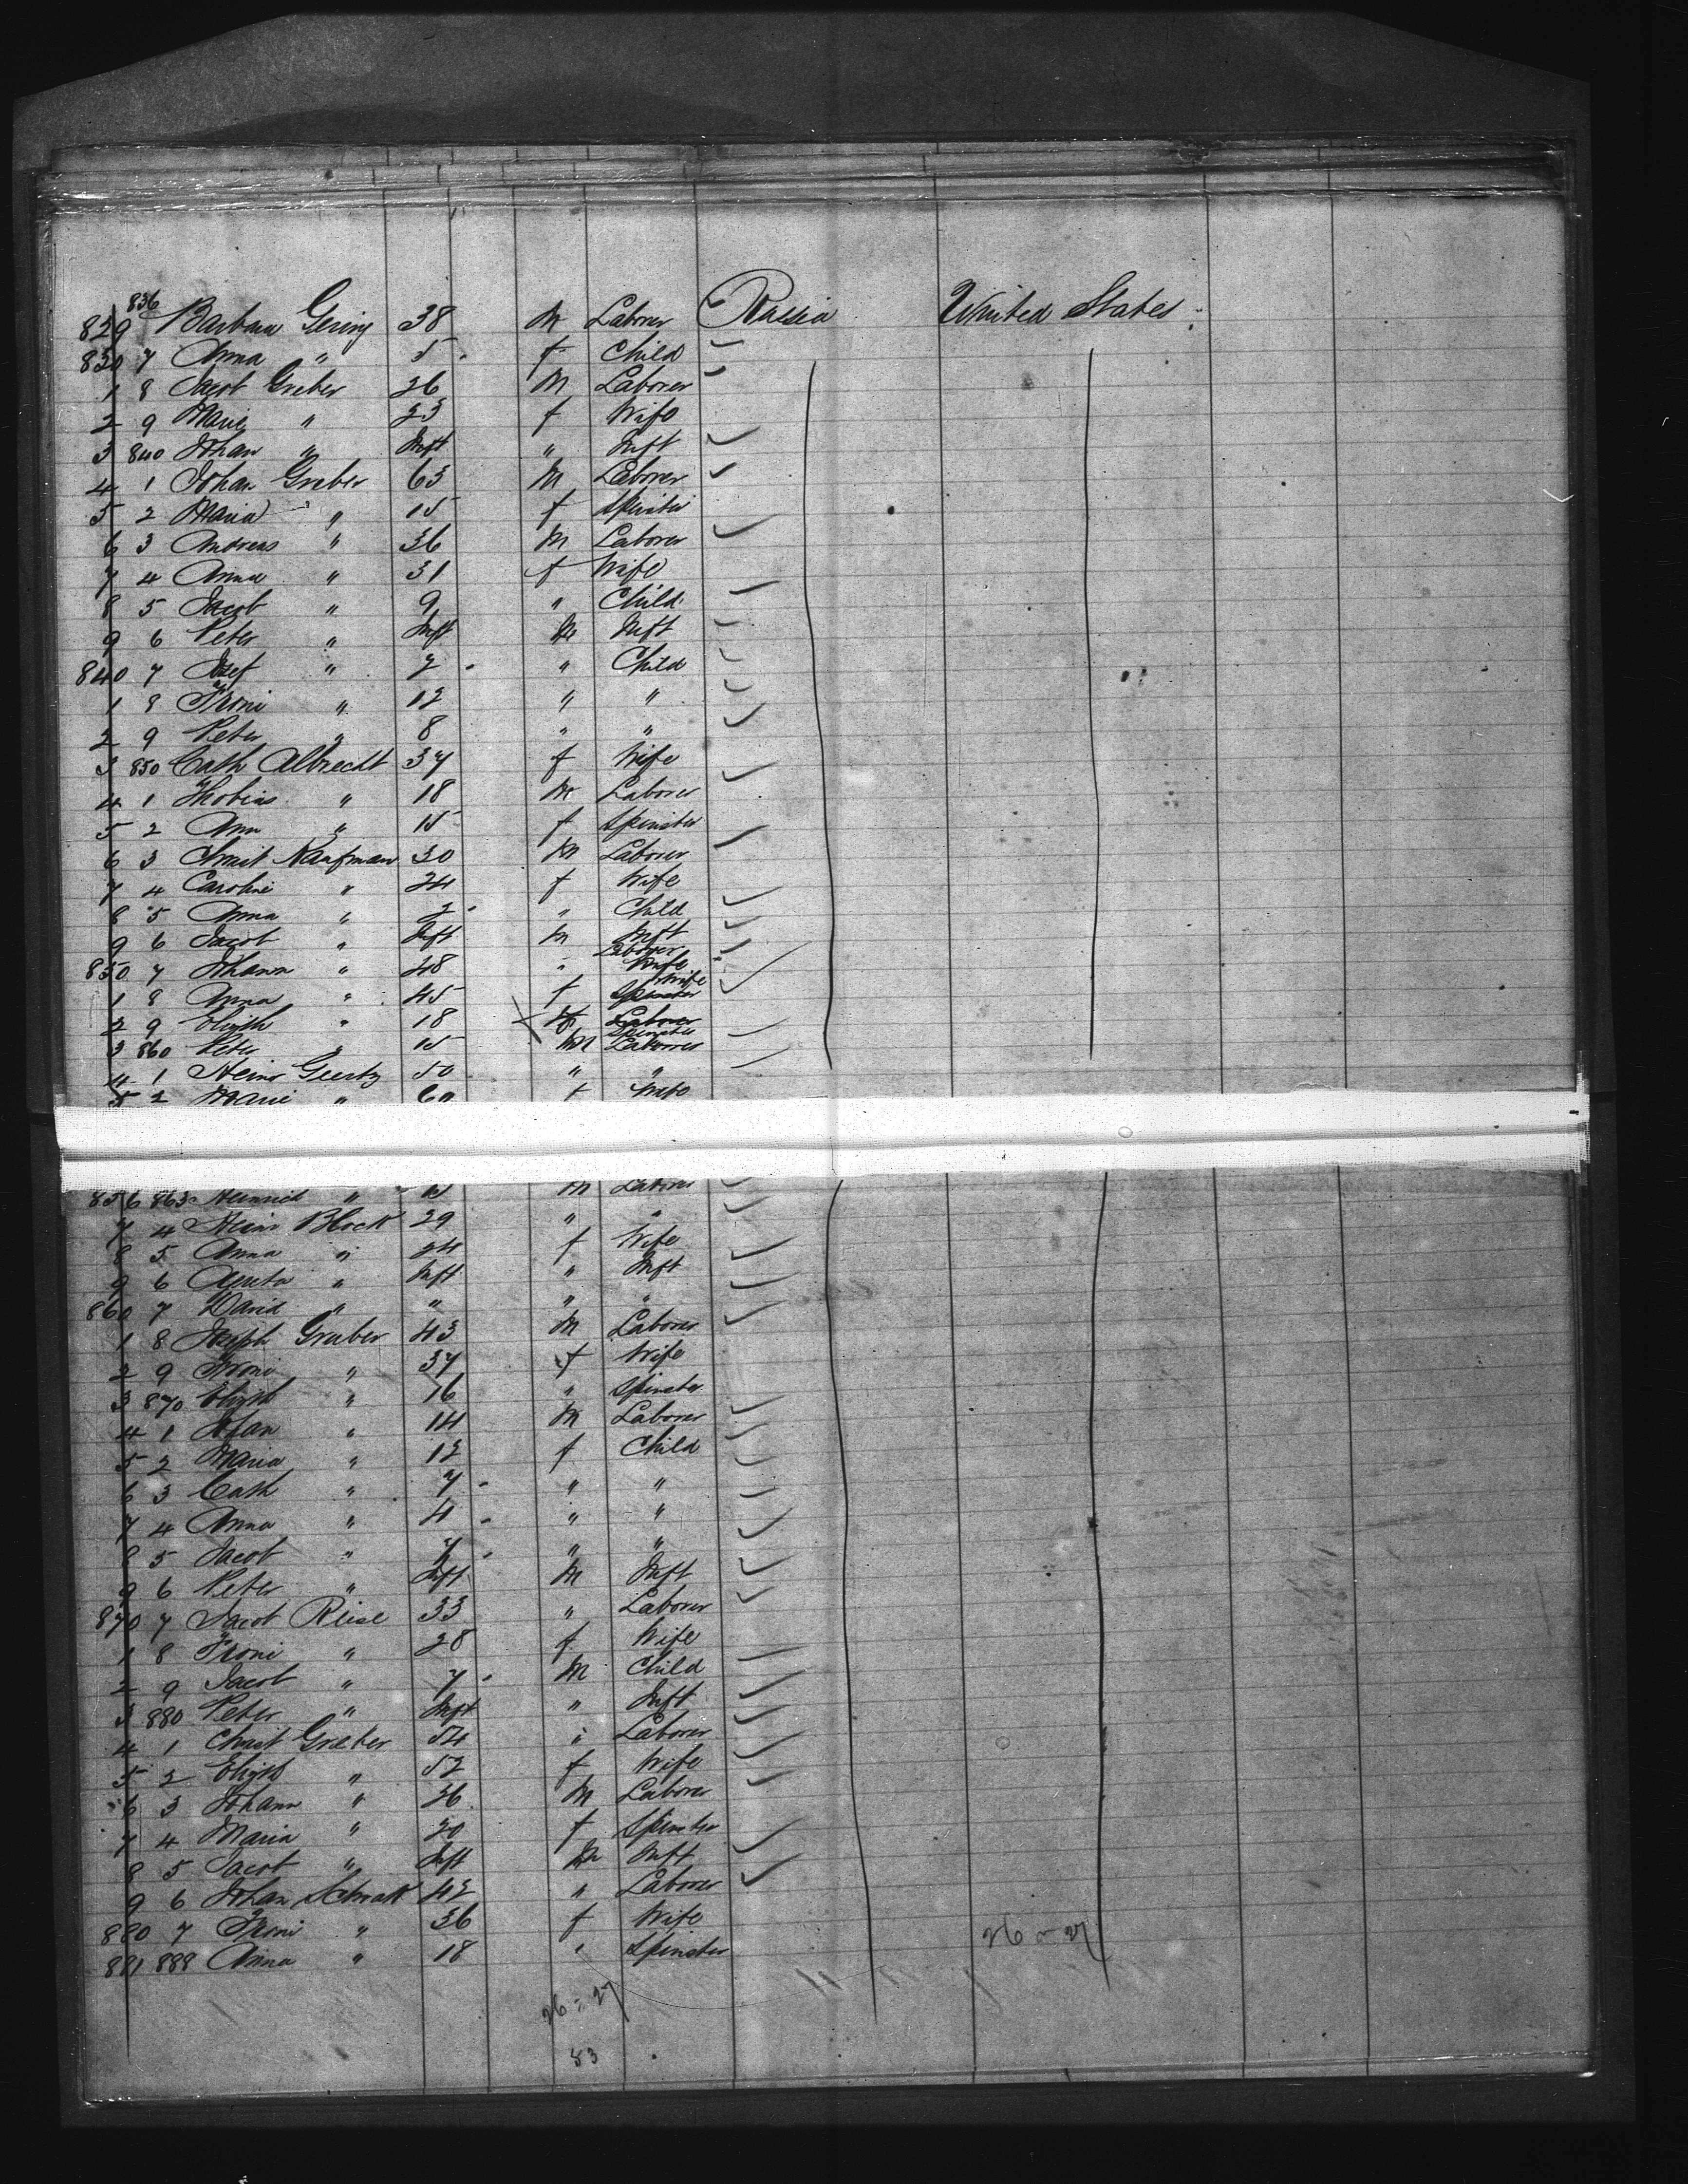 836
829 Barbara Gering 38 M Laborer Russia United States
830 7 Anna " 5 f Child
1 8 Jacob Greber 26 M Laborer
2 9 Marie " 23 f Wife
3 840 Johan " Inft " Inft
4 1 Johan Graber 63 M Laborer
5 2 Maria " 15 f Spinster
6 3 Andreas " 36 M Laborer
7 4 Anna " 31 f Wife
8 5 Jacob " 9 " Child
9 6 Peter " Inft M Inft
840 7 Josef " 2 " Child
1 8 Froni " 12 " "
2 9 Peter " 8 " "
3 850 Cath Albrecht 37 f Wife
4 1 Thobias " 18 M Laborer
5 2 Ann " 15 f Spinster
6 3 Christ Kaufman 30 M Laborer
7 4 Caroline " 24 f Wife
8 5 Anna " 2 " Child
9 6 Jacob " Inft M Inft
Laborer
850 7 Johann " 48 " Wife
Wife
1 8 Anna " 45 f Spinster
2 9 Elizth " 18 f Laborer
Spinster
3 860 Peter " 15 M Laborer
4 1 Heinr Geertz 50 " "
5 2 Marie " 60 f Wife
856 863 Heinrich " 15 M Laborer
7 4 Heinr Block 29 " "
8 5 Anna " 24 f Wife
9 6 Aganeta " Inft " Inft
860 7 David " " " "
1 8 Joseph Graber 43 M Laborer
2 9 Froni " 37 f Wife
3 870 Elizth " 16 " Spinster
4 1 Johan " 14 M Laborer
5 2 Maria " 12 f Child
6 3 Cath " 7 " "
7 4 Anna " 4 " "
8 5 Jacob " " "
9 6 Peter " Inft M Inft
870 7 Jacob Reise 33 " Laborer
1 8 Froni " 28 f Wife
2 9 Jacob " 7 M Child
3 880 Peter " Inft " Inft
4 1 Christ Graber 54 " Laborer
5 2 Elizth " 52 f Wife
6 3 Johann " 26 M Laborer
7 4 Maria " 20 f Spinster
8 5 Jacob " Inft M Inft
9 6 Johan Schrak 42 " Laborer
880 7 Froni " 36 f Wife
881 888 Anna " 18 " Spinster
26 = 27
26 = 27
83